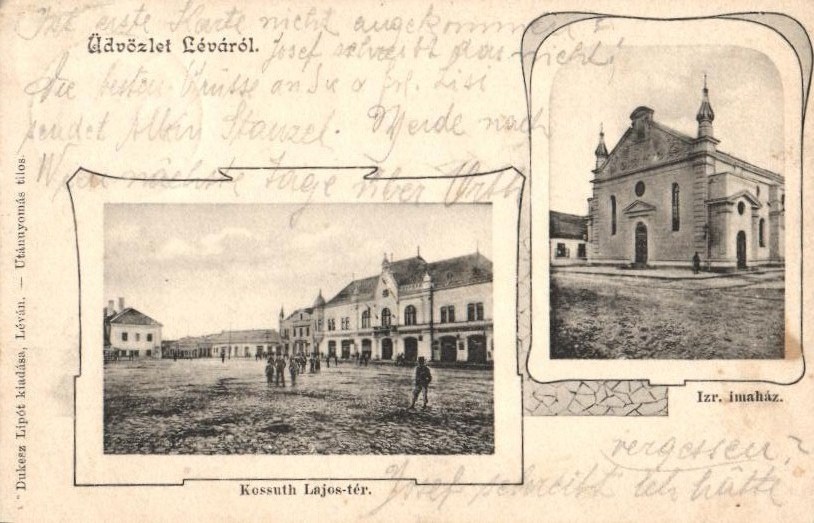 Ist erste Karte nicht angekommen?
Üdvözlet Léváról.
Josef schreibt das nicht!
Die besten Grüsse an
sendet Stanzel. Werde nach
nächste Tage über
Izr. imaház.
Kossuth Lajos-tér.
vergessen?
Josef schreibt ich hätte
Dukesz Lipót kiadása, Léván. — Utánnyomás tilos.